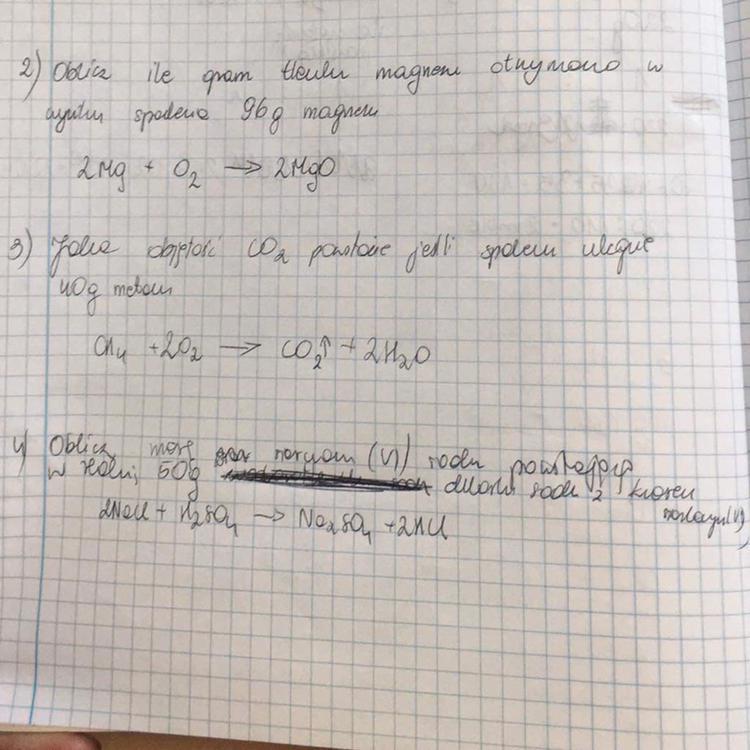 2) Oblicz ile gram tlenku magnezu otrzymano w
wyniku spalenia 96g magnezu
2Mg + O₂ → 2MgO
3) Jaka objętość CO₂ powstanie jeśli spaleniu ulegnie
40g metanu
CH₄ + 2O₂ → CO₂↑ + 2H₂O
4) Oblicz masę (VI) sodu powstającą
w reakcji 50g chlorku sodu z kwasem
siarkowym(VI)
2NaCl + H₂SO₄ → Na₂SO₄ + 2HCl